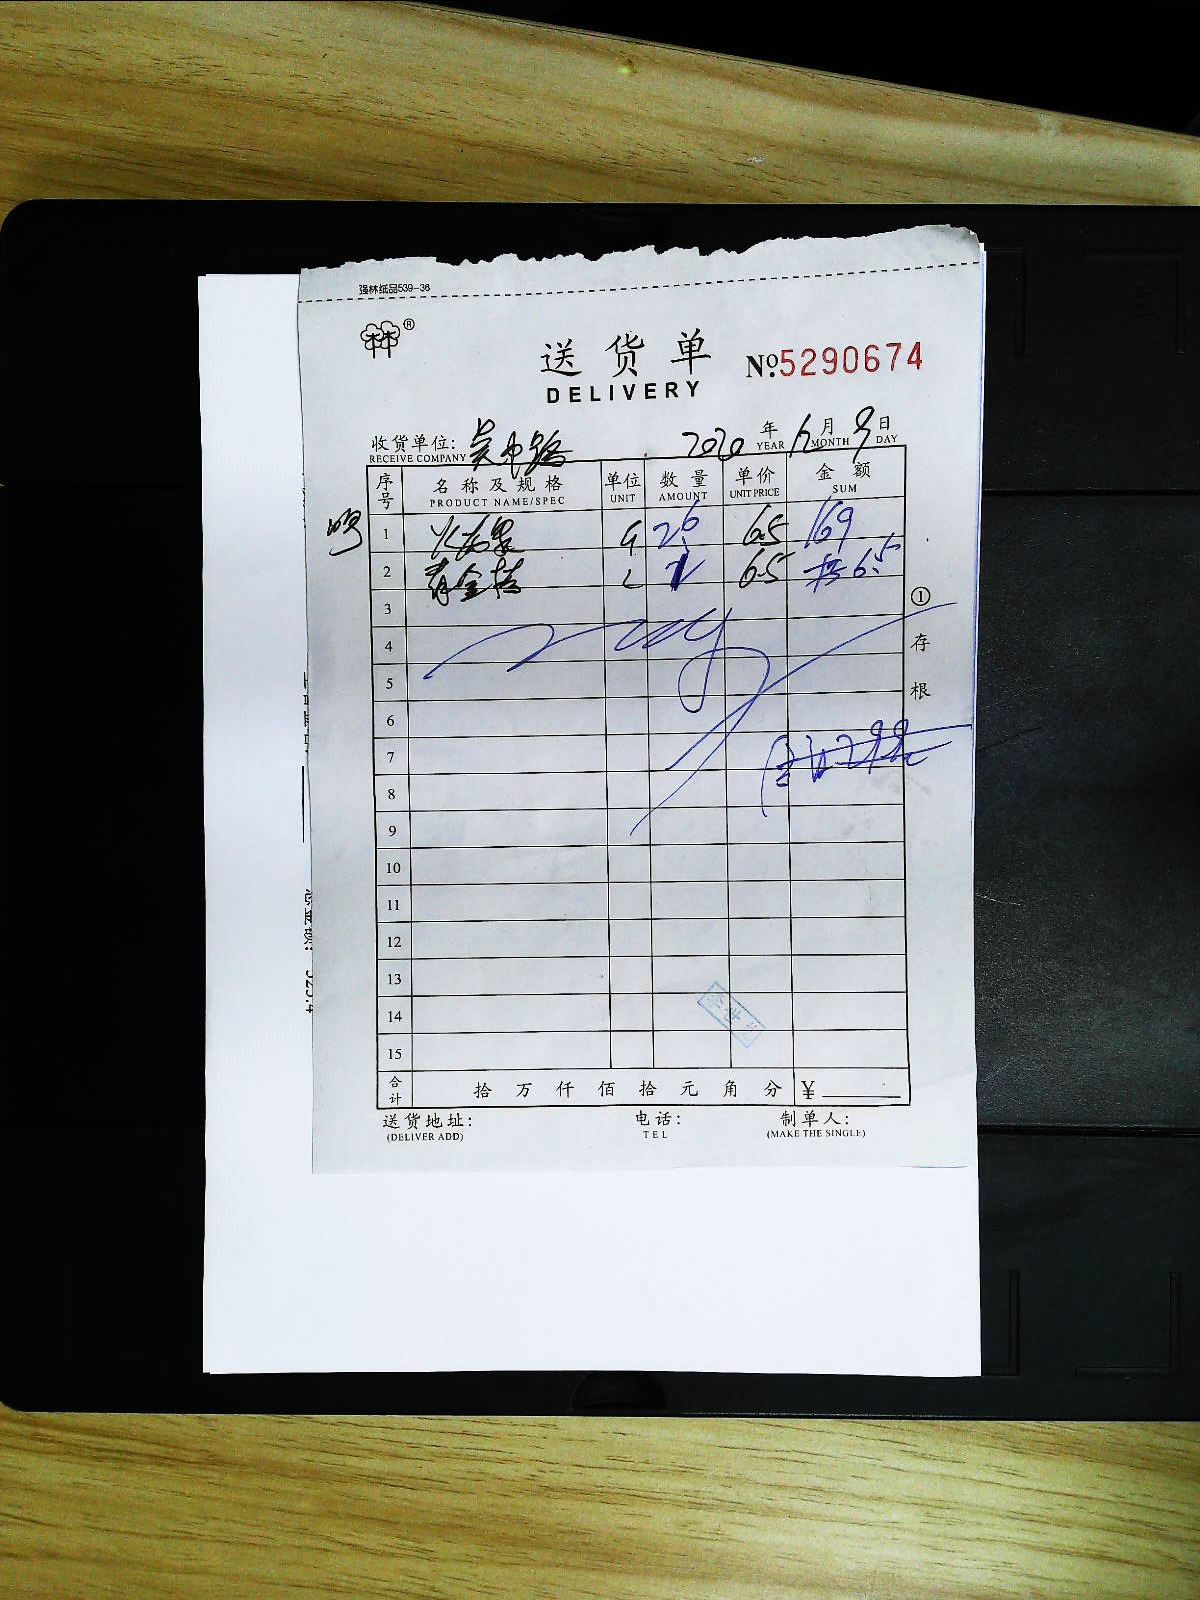 强林纸品539-36
林®
送货单 №5290674
DELIVERY
收货单位: 吴中路 2020 年 6 月 9 日
RECEIVE COMPANY YEAR MONTH DAY
序号 名称及规格 单位 数量 单价 金额
PRODUCT NAME/SPEC UNIT AMOUNT UNIT PRICE SUM
1 火龙果 26 6.5 169
2 6.5 6.5
3
4
5
6
7
8
9
10
11
12
13
14
15
合计 拾 万 仟 佰 拾 元 角 分 ¥
送货地址: 电话: 制单人:
(DELIVER ADD) TEL (MAKE THE SINGLE)
①存根